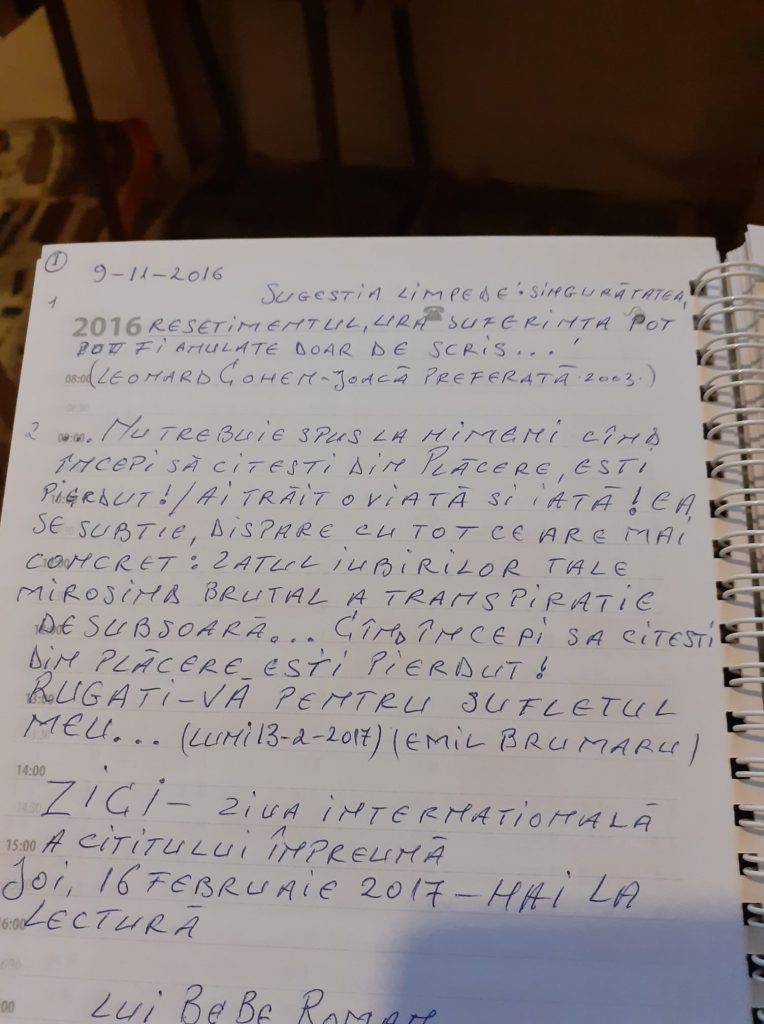 1
9-11-2016
1 SUGESTIA LIMPEDE: SINGURĂTATEA,
2016 RESETIMENTUL, URA SUFERINTA POT
FI ANULATE DOAR DE SCRIS...!
08:00 (LEONARD COHEN-JOACĂ PREFERATĂ 2003.)
2 09:00. NU TREBUIE SPUS LA NIMENI CÎND
ÎNCEPI SĂ CITESTI DIN PLĂCERE, ESTI
PIERDUT!/AI TRĂIT O VIATĂ SI IATĂ! EA
SE SUBTIE, DISPARE CU TOT CE ARE MAI
CONCRET: ZATUL IUBIRILOR TALE
MIROSIND BRUTAL A TRANSPIRATIE
DE SUBSOARĂ... CÎND ÎNCEPI SA CITESTI
DIN PLĂCERE ESTI PIERDUT!
RUGATI-VĂ PENTRU SUFLETUL
MEU... (LUNI 13-2-2017) (EMIL BRUMARU)
14:00
ZICI- ZIUA INTERNATIONALĂ
15:00 A CITITULUI ÎMPREUNĂ
JOI, 16 FEBRUAIE 2017-HAI LA
16:00 LECTURĂ
LUI BEBE ROMAN